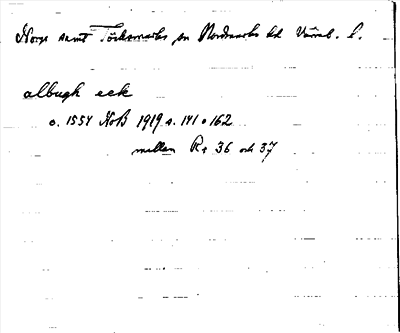 Norge samt Töcksmarks sn Nordmarks hd Värml. l.
albugh eek
o. 1554 NoB 1919 s. 141 o 162
mellan Rs 36 och 37